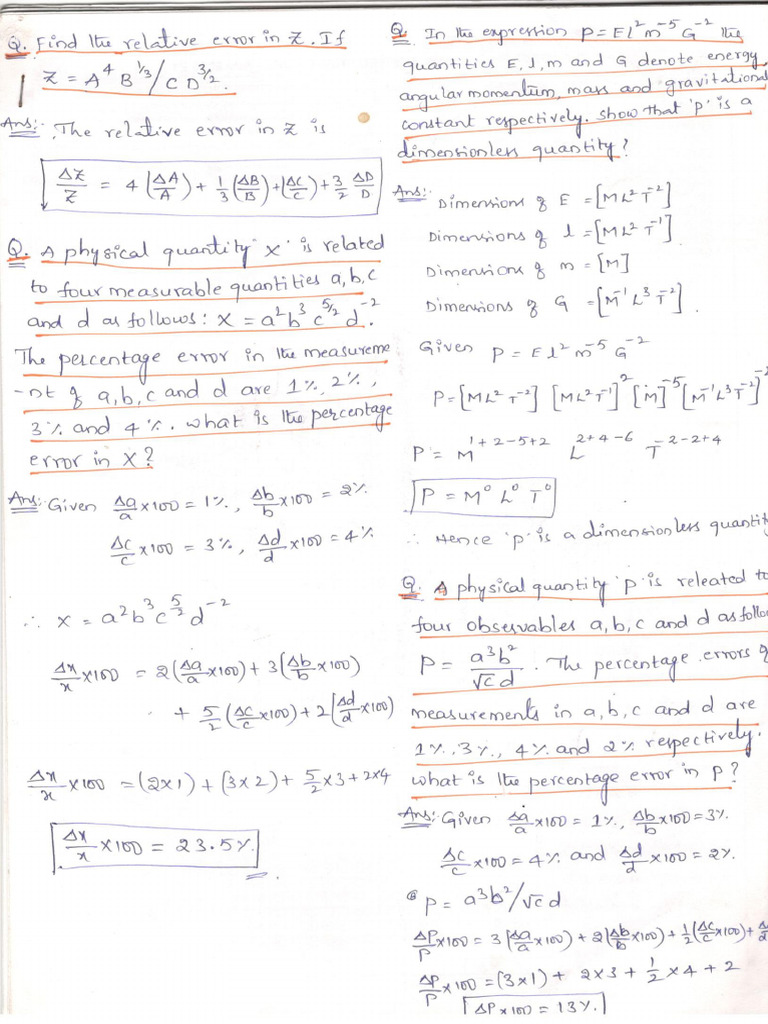 Q. Find the relative error in Z. If
Z = A⁴ B^1/3 / C D^3/2.
Ans:- The relative error in Z is
ΔZ/Z = 4 (ΔA/A) + 1/3 (ΔB/B) + (ΔC/C) + 3/2 ΔD/D
Q. A physical quantity 'X' is related
to four measurable quantities a, b, c
and d as follows: X = a² b³ c^5/2 d⁻².
The percentage error in the measureme
-nt of a, b, c and d are 1%, 2%,
3% and 4%. what is the percentage
error in X?
Ans:- Given Δa/a ×100 = 1%, Δb/b ×100 = 2%
Δc/c ×100 = 3%, Δd/d ×100 = 4%
∴ X = a² b³ c^5/2 d⁻²
Δx/x ×100 = 2(Δa/a ×100) + 3(Δb/b ×100)
+ 5/2 (Δc/c ×100) + 2(Δd/d ×100)
Δx/x ×100 = (2×1) + (3×2) + 5/2 ×3 + 2×4
Δx/x ×100 = 23.5%.
Q. In the expression P = E l² m⁻⁵ G⁻² the
quantities E, l, m and G denote energy,
angular momentum, mass and gravitational
constant respectively. show that 'p' is a
dimensionless quantity?
Ans:- Dimensions of E = [ML²T⁻²]
Dimensions of l = [ML² T⁻¹]
Dimensions of m = [M]
Dimensions of G = [M⁻¹ L³ T⁻²].
Given P = E l² m⁻⁵ G⁻²
P = [ML² T⁻²] [ML² T⁻¹]² [M]⁻⁵ [M⁻¹L³ T⁻²]⁻²
P = M^1+2-5+2 L^2+4-6 T^-2-2+4
P = M⁰ L⁰ T⁰
∴ Hence 'p' is a dimensionless quantit
Q. A physical quantity 'p' is releated to
four observables a, b, c and d as follo
P = a³b²/√c d. The percentage errors of
measurements in a, b, c and d are
1%, 3%, 4% and 2% respectively.
what is the percentage error in P?
Ans:- Given Δa/a ×100 = 1%, Δb/b ×100 = 3%
Δc/c ×100 = 4% and Δd/d ×100 = 2%.
P = a³b²/√c d
ΔP/P ×100 = 3(Δa/a ×100) + 2(Δb/b ×100) + 1/2 (Δc/c ×100) + Δ
ΔP/P ×100 = (3×1) + 2×3 + 1/2 ×4 + 2
ΔP ×100 = 13%.